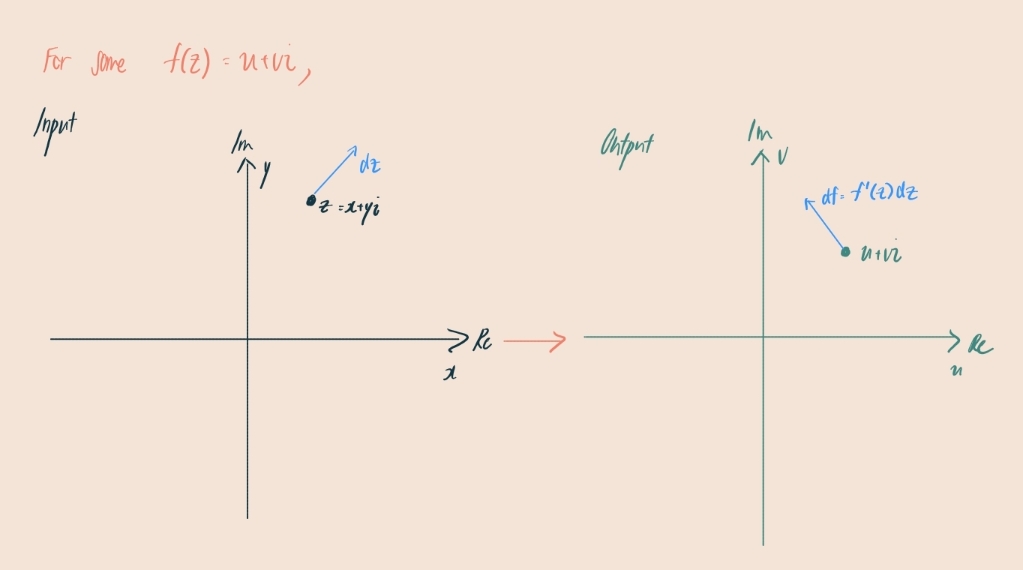 For some f(z) = u+vi,
Input
Im
y
dz
z = x+yi
Re
x
Output
Im
v
df = f'(z)dz
u+vi
Re
u